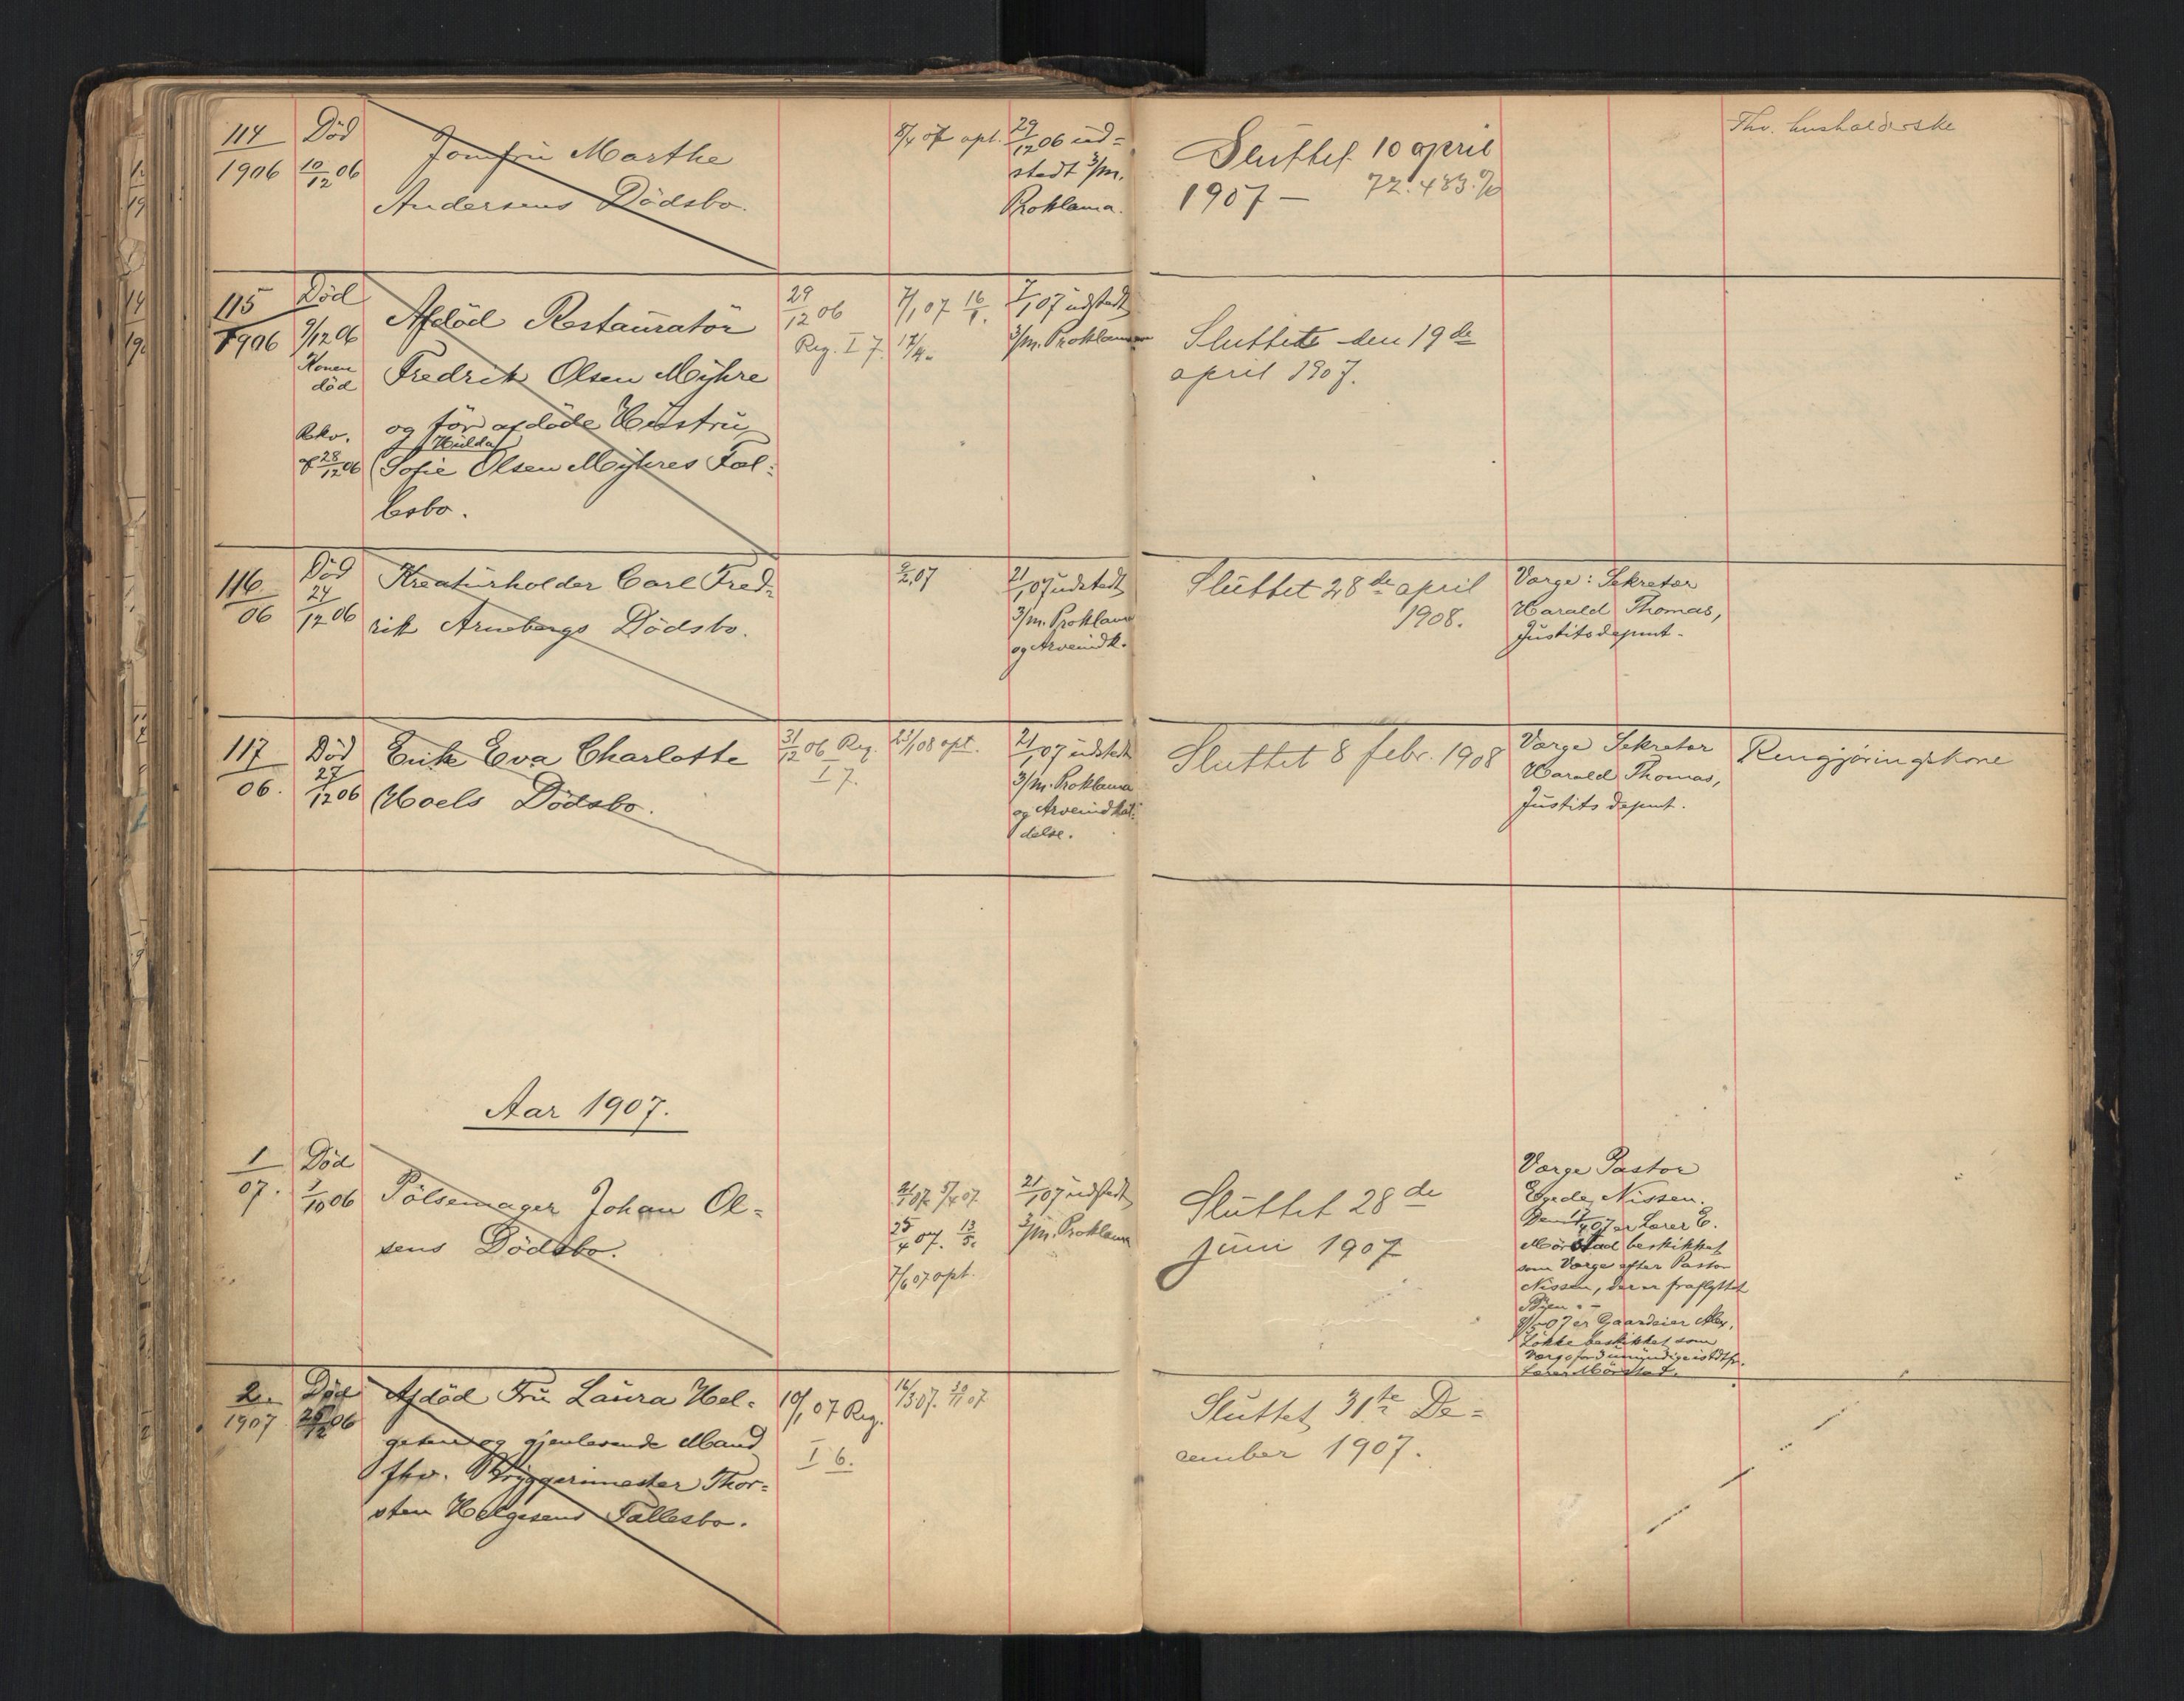 114
1906
Död
10/12 06
Jomfru Marthe
Andersens Dödsbo.
8/4 07 opt.
29/12 06 ud=
stedt 3/m.
Proklama.
Sluttet 10 april
1907 —
72.483.70
Thv. husholderske
115
1906
Död
9/12 06
Konen
död
Rkv.
af 28/12 06
Afdöd Restauratör
Fredrik Olsen Myhre
og för afdöde Hustru
Hulda
Sofie Olsen Myhres Fæl=
lesbo.
29/12 06
Reg. I 7.
7/1 07 16/1.
17/4.
7/1 07 udstedt
3/m. Proklama
Sluttet den 19de
april 1907.
116
06
Död
24/12 06
Kreaturholder Carl Fred=
rik Arnebergs Dödsbo.
9/2 07
21/1 07 udstedt
3/m. Proklama
og Arveindk.
Sluttet 28de april
1908.
Værge: Sekretær
Harald Thomas,
Justitsdepmt.
117
06.
Död
27/12 06
Enke Eva Charlotte
Hoels Dödsbo.
31/12 06 Reg.
I 7.
23/1 08 opt.
21/1 07 udstedt
3/m. Proklama
og Arveindkal=
delse.
Sluttet 8 febr. 1908
Værge Sekretær
Harald Thomas,
Justits depmt.
Rengjøringskone
Aar 1907.
1
07.
Död
3/10 06
Pölsemager Johan Ol=
sens Dödsbo.
21/1 07. 5/4 07
25/4 07. 13/5.
7/6 07 opt.
21/1 07 udstedt
3/m. Proklama
Sluttet 28de
juni 1907
Værge Pastor
Egede Nissen.
Den 17/4 07 er Lærer E.
Mörstad beskikket
som Værge efter Pastor
Nissen, der er fraflyttet
Byen. -
8/5 07 er Gaardeier Alex.
Lökke beskikket som
Værge for 3 umyndige istdtfr.
Lærer Mörstad.
2.
1907
Död
26/12 06
Afdöd Fru Laura Hel=
gesens og gjenlevende Mand
fhv. Bryggerimester Thor=
sten Helgesens Fællesbo.
10/1 07 Reg.
I 6.
16/3 07. 30/11 07
Sluttet 31te De=
cember 1907.